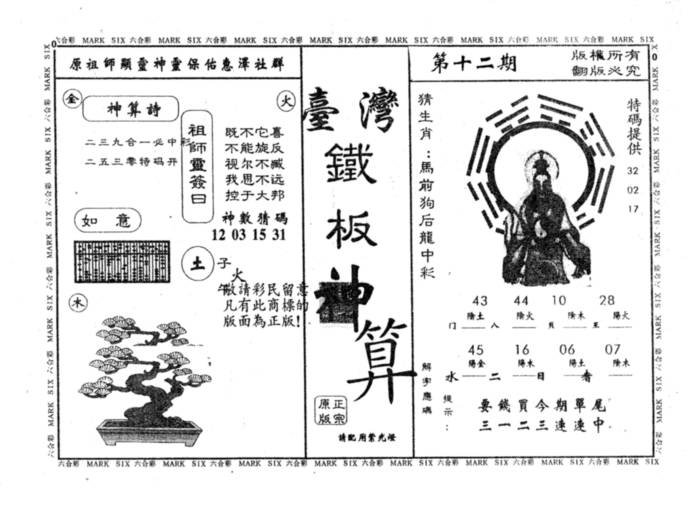 六合彩 MARK SIX 六合彩 MARK SIX 六合彩 MARK SIX 六合彩 MARK SIX 六合彩 MARK SIX 六合彩 MARK SIX 六合彩 MARK SIX
原祖師顯靈神靈保佑惠澤社群
金
神算詩
二三九合一必中彩
二五三零特码开
火
祖師靈簽曰
既不它喜
不能旋反
视尔不臧
我思不远
控于大邦
神數猜碼
12 03 15 31
如意
土
子
火
午
敬請彩民留意
凡有此商標的
版面為正版!
木
臺灣
鐵
板
神
算
正宗
原版
請配用紫光燈
第十二期
版權所有
翻版必究
猜生肖:馬前狗后龍中彩
特碼提供
32
02
17
43 44 10 28
陰土 陰火 陰木 陽火
门 八 貝 王
45 16 06 07
陽金 陽木 陽土 陰木
水 二 日 看
解字應碼
提示:
要錢買今期單尾
三一二三連連中
六合彩 MARK SIX 六合彩 MARK SIX 六合彩 MARK SIX 六合彩 MARK SIX 六合彩 MARK SIX 六合彩 MARK SIX 六合彩 MARK SIX